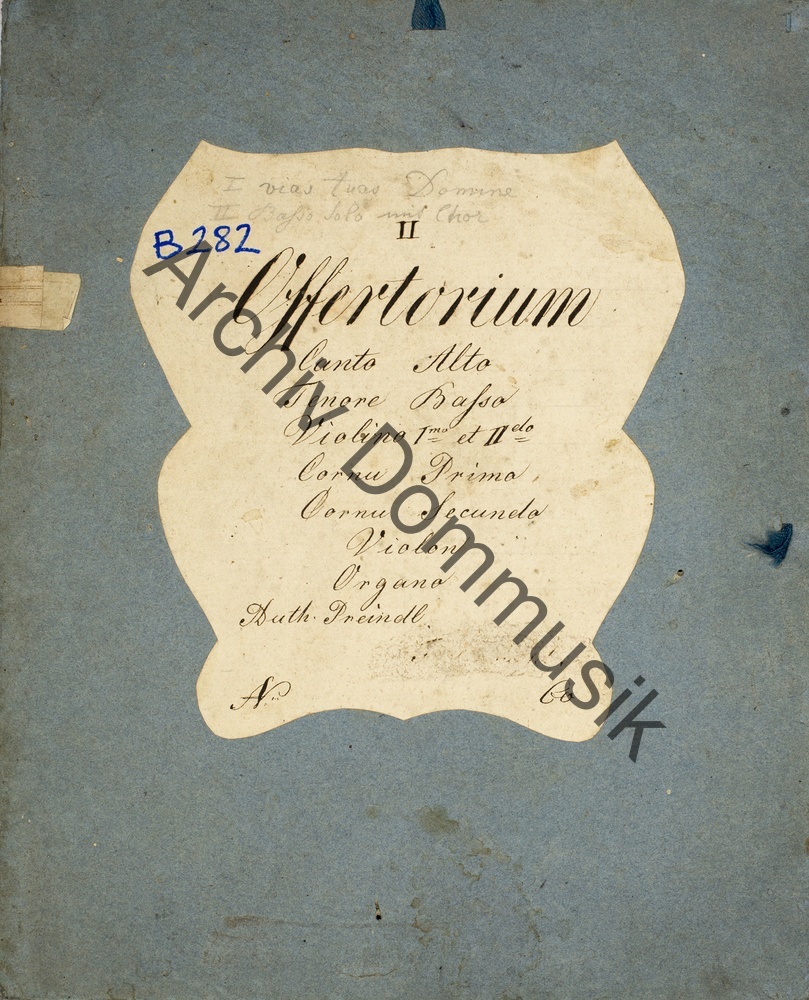 I vias tuas Domine
II Basso Solo mit Chor
II
B 282
Offertorium
Canto Alto
Tenore Basso
Violino Imo et IIdo
Cornu Primo
Cornu Secundo
Violon
Organo
Auth. Preindl.
No
Archiv Dommusik